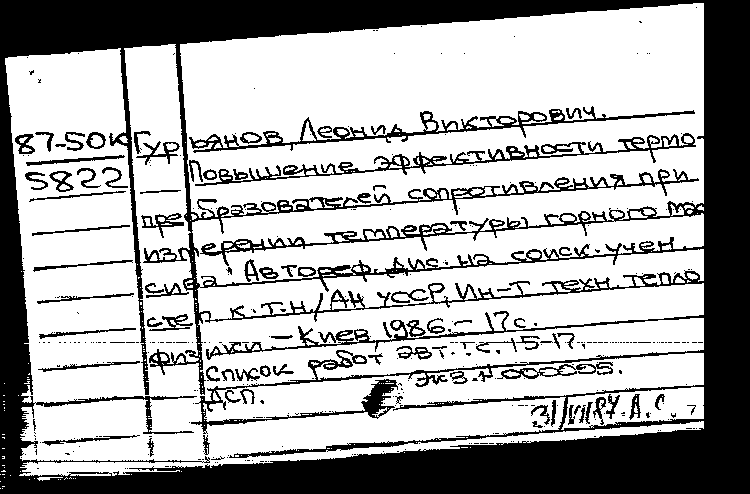 87-50К Гурьянов, Леонид Викторович.
5822 Повышение эффективности термо-
преобразователей сопротивления при
измерении температуры горного мас
сива: Автореф. дис. на соиск. учен.
степ к.т.н/АН УССР, Ин-т техн. тепло
физики.—Киев, 1986.— 17с.
Список работ авт.: с. 15-17.
Экз.N000005.
ДСП.
31/VII87. А.С.